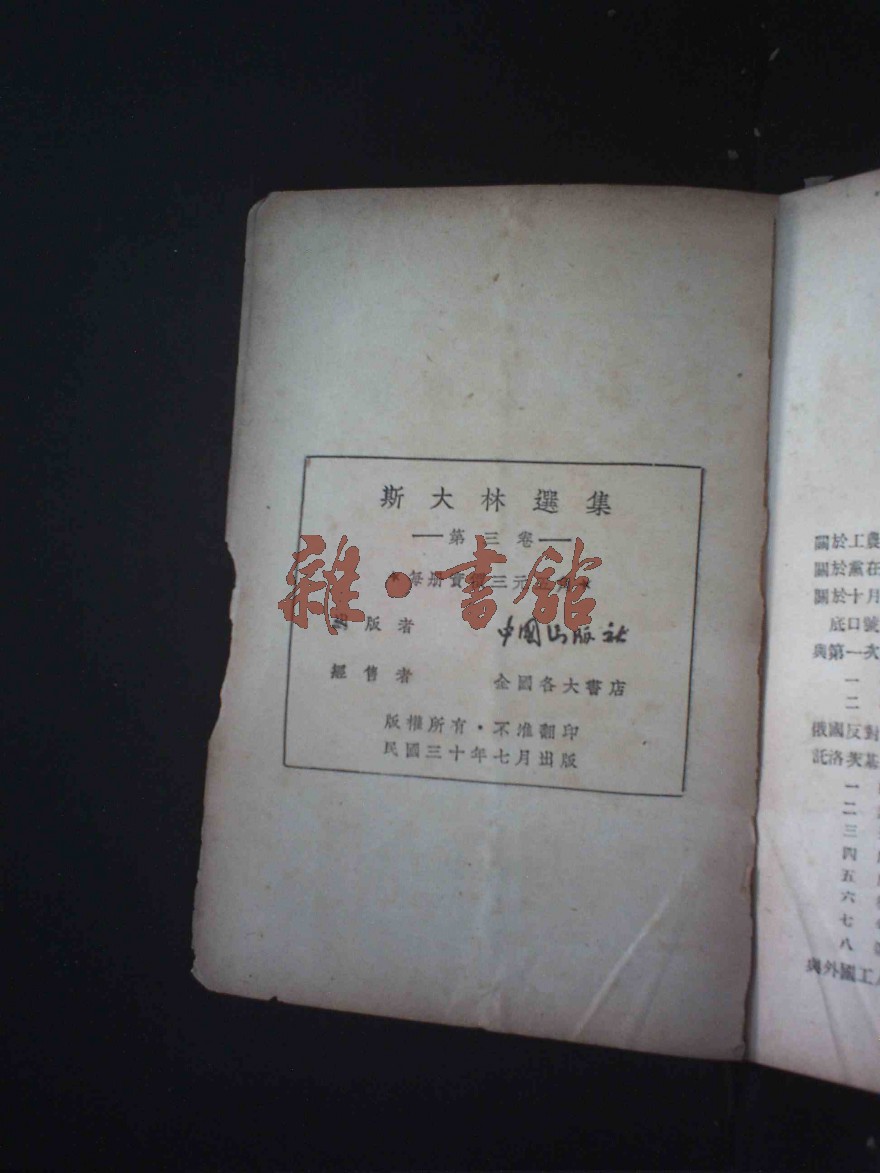 斯大林選集
—第三卷—
*每册實價三元
出版者 中國出版社
經售者 全國各大書店
版權所有·不准翻印
民國三十年七月出版
雜·書館
關於工農
關於黨在
關於十月
底口號
與第一次
一
二
俄國反對
託洛茨基
一
二
三
四
五
六
七
八
與外國工人